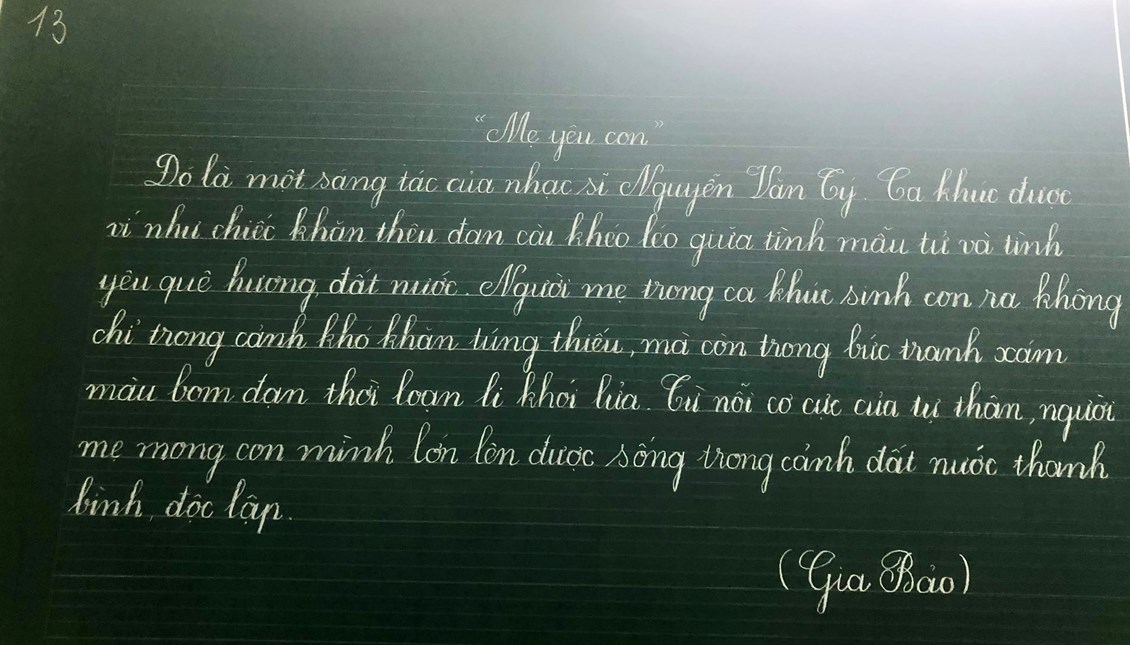 13
“Mẹ yêu con”
Đó là một sáng tác của nhạc sĩ Nguyễn Văn Tý. Ca khúc được
ví như chiếc khăn thêu đan cài khéo léo giữa tình mẫu tử và tình
yêu quê hương, đất nước. Người mẹ trong ca khúc sinh con ra không
chỉ trong cảnh khó khăn túng thiếu, mà còn trong bức tranh xám
màu bom đạn thời loạn li khói lửa. Từ nỗi cơ cực của tự thân, người
mẹ mong con mình lớn lên được sống trong cảnh đất nước thanh
bình, độc lập.
(Gia Bảo)